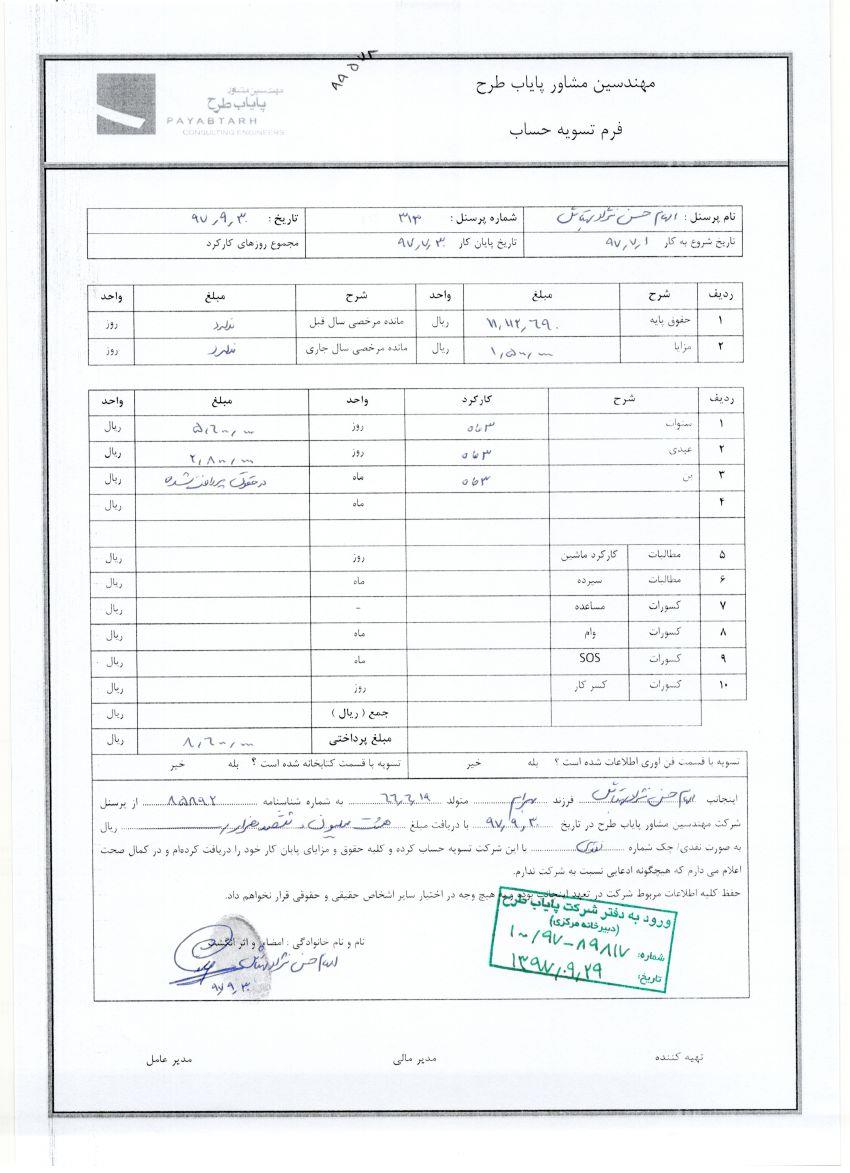 ۹۹۵۷۳
مهندسین مشاور پایاب طرح
فرم تسویه حساب
مهندسین مشاور
پایاب طرح
PAYABTARH
CONSULTING ENGINEERS
نام پرسنل : الهام حسن نژاد شماره پرسنل : ۳۱۳ تاریخ : ۹۷٫۹٫۳۰
تاریخ شروع به کار ۹۷٫۷٫۱ تاریخ پایان کار ۹۷٫۷٫۳۰ مجموع روزهای کارکرد
ردیف شرح مبلغ واحد شرح مبلغ واحد
۱ حقوق پایه ۱۱,۱۱۲,۶۹۰ ریال مانده مرخصی سال قبل ندارد روز
۲ مزایا ۱,۵۰۰,۰۰۰ ریال مانده مرخصی سال جاری ندارد روز
ردیف شرح کارکرد واحد مبلغ واحد
۱ سنوات روز ۵,۶۰۰,۰۰۰ ریال
۲ عیدی روز ۲,۸۰۰,۰۰۰ ریال
۳ بن ماه در حقوق پرداخت شده ریال
۴ ماه ریال
۵ مطالبات کارکرد ماشین روز ریال
۶ مطالبات سپرده ماه ریال
۷ کسورات مساعده - ریال
۸ کسورات وام ماه ریال
۹ کسورات SOS ماه ریال
۱۰ کسورات کسر کار روز ریال
جمع ( ریال ) ریال
مبلغ پرداختی ۸,۶۰۰,۰۰۰ ریال
تسویه با قسمت فن اوری اطلاعات شده است ؟ بله خیر تسویه با قسمت کتابخانه شده است ؟ بله خیر
اینجانب الهام حسن نژاد فرزند بهرام متولد ۶۶٫۶٫۱۹ به شماره شناسنامه ۸۵۸۹۲ از پرسنل
شرکت مهندسین مشاور پایاب طرح در تاریخ ۹۷٫۹٫۳۰ با دریافت مبلغ هشت میلیون و ششصد هزار ریال
به صورت نقدی/ چک شماره نقدی با این شرکت تسویه حساب کرده و کلیه حقوق و مزایای پایان کار خود را دریافت کرده‌ام و در کمال صحت
اعلام می دارم که هیچگونه ادعایی نسبت به شرکت ندارم.
حفظ کلیه اطلاعات مربوط شرکت در تعهد اینجانب بوده و به هیچ وجه در اختیار سایر اشخاص حقیقی و حقوقی قرار نخواهم داد.
ورود به دفتر شرکت پایاب طرح
(دبیرخانه مرکزی)
شماره: ۱۰۰/۹۷-۸۹۸۱۷
تاریخ: ۱۳۹۷٫۰۹٫۲۹
نام و نام خانوادگی : امضاء و اثر انگشت
الهام حسن نژاد
۹۷٫۹٫۳۰
تهیه کننده مدیر مالی مدیر عامل